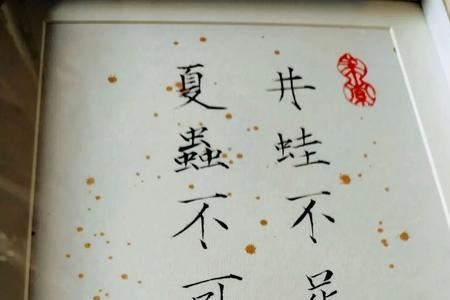 井蛙不
夏蟲不可